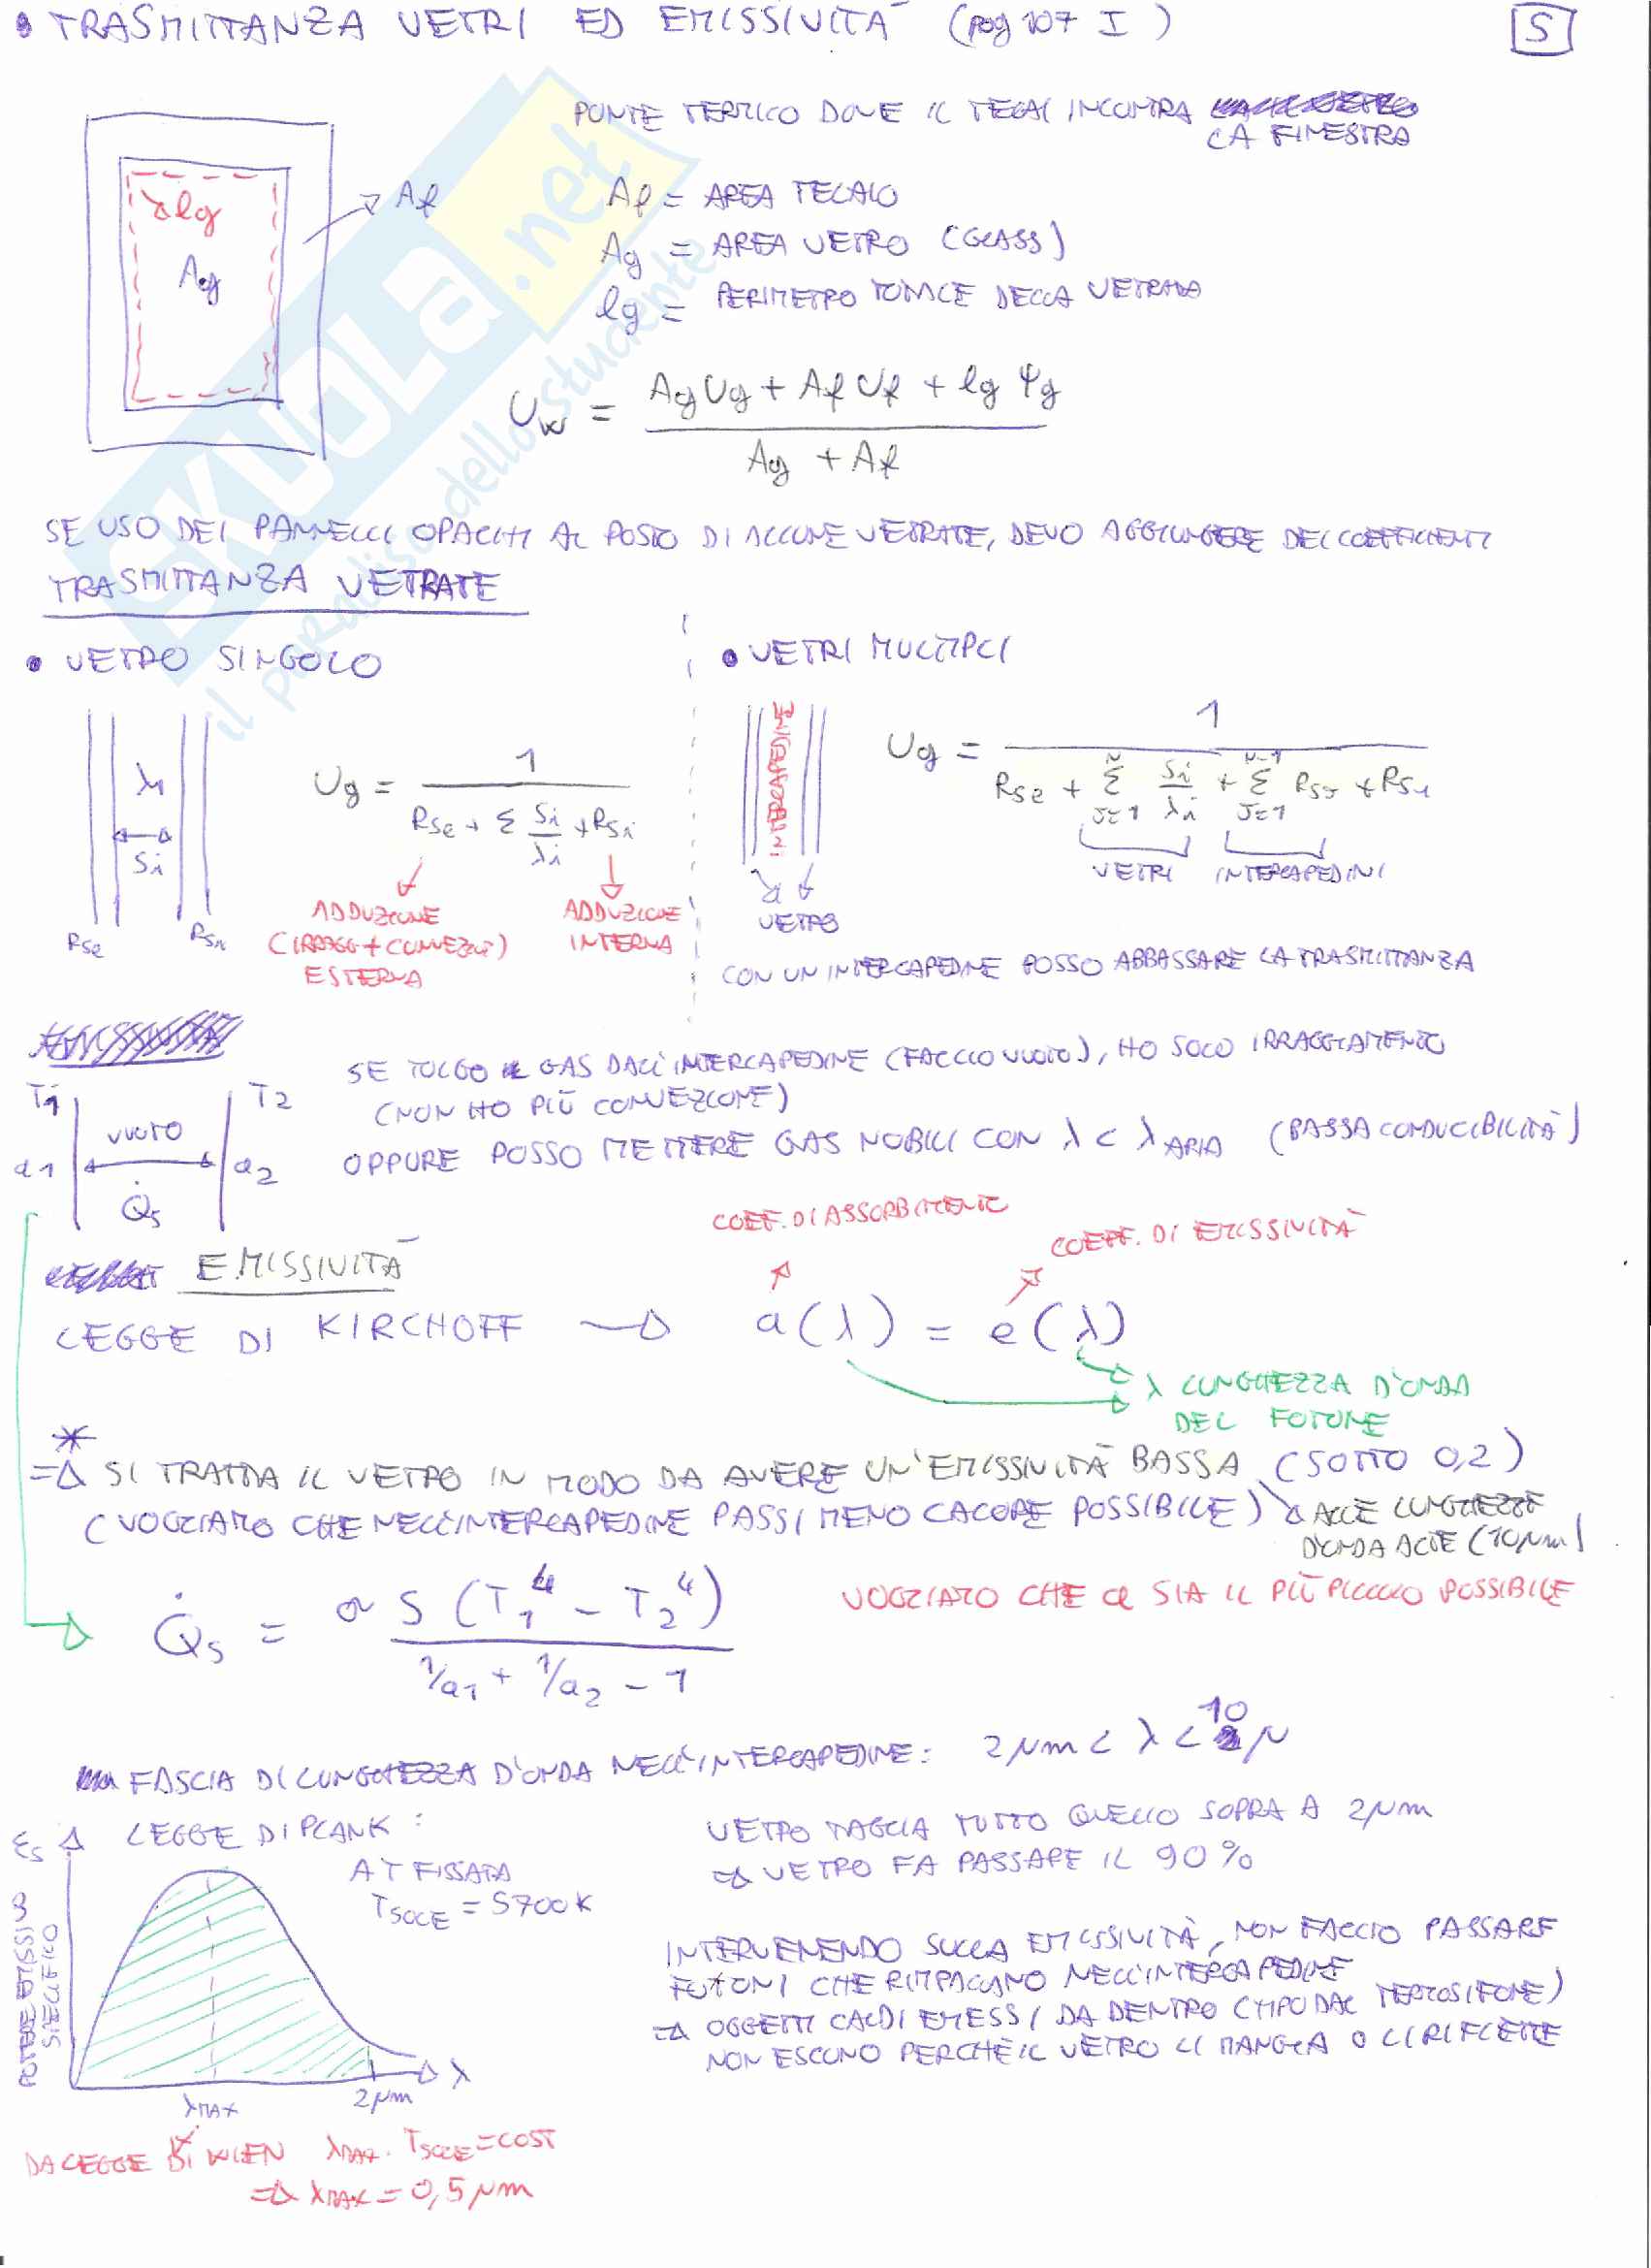 • TRASMITTANZA VETRI ED EMISSIVITÀ (pag 107 I)
5
PONTE TERMICO DOVE IL TELAI INCONTRA
LA FINESTRA
lg
Ag
Af
Af = AREA TELAIO
Ag = AREA VETRO (GLASS)
lg = PERIMETRO TOTALE DELLA VETRATA
Uw = (Ag Ug + Af Uf + lg Ψg) / (Ag + Af)
SKUOLA.net
il paradiso dello studente
SE USO DEI PANNELLI OPACHI AL POSTO DI ALCUNE VETRATE, DEVO AGGIUNGERE DEI COEFFICIENTI
TRASMITTANZA VETRATE
• VETRO SINGOLO
λi
Si
Rse
Rsi
Ug = 1 / (Rse + Σ Si/λi + Rsi)
ADDUZIONE
(IRRAGG + CONVEZIO)
ESTERNA
ADDUZIONE
INTERNA
• VETRI MULTIPLI
INTERCAPEDINE
VETRO
Ug = 1 / (Rse + Σ(J=1, N) Si/λi + Σ(J=1, N-1) RsJ + Rsi)
VETRI INTERCAPEDINI
CON UN INTERCAPEDINE POSSO ABBASSARE LA TRASMITTANZA
T1 T2
VUOTO
a1 a2
Q̇s
SE TOLGO IL GAS DALL'INTERCAPEDINE (FACCIO VUOTO), HO SOLO IRRAGGIAMENTO
(NON HO PIÙ CONVEZIONE)
OPPURE POSSO METTERE GAS NOBILI CON λ < λ ARIA (BASSA CONDUCIBILITÀ)
EMISSIVITÀ
COEFF. DI ASSORBIMENTO
COEFF. DI EMISSIVITÀ
LEGGE DI KIRCHOFF → a(λ) = e(λ)
λ LUNGHEZZA D'ONDA
DEL FOTONE
*
⇒ SI TRATTA IL VETRO IN MODO DA AVERE UN'EMISSIVITÀ BASSA (SOTTO 0,2)
(VOGLIAMO CHE NELL'INTERCAPEDINE PASSI MENO CALORE POSSIBILE)
ALLE LUNGHEZZE
D'ONDA ALTE (10μm)
Q̇s = σ S (T1⁴ - T2⁴) / (1/a1 + 1/a2 - 1)
VOGLIAMO CHE a SIA IL PIÙ PICCOLO POSSIBILE
FASCIA DI LUNGHEZZA D'ONDA NELL'INTERCAPEDINE: 2μm < λ < 10 μ
LEGGE DI PLANK:
A T FISSATA
TSOLE = 5700K
εs
POTERE EMISSIVO
SPECIFICO
λMAX
2μm
λ
DA LEGGE DI WIEN λMAX · TSOLE = COST
⇒ λMAX = 0,5 μm
VETRO TAGLIA TUTTO QUELLO SOPRA A 2μm
⇒ VETRO FA PASSARE IL 90%
INTERVENENDO SULLA EMISSIVITÀ, NON FACCIO PASSARE
FOTONI CHE RIMPALLANO NELL'INTERCAPEDINE
⇒ OGGETTI CALDI EMESSI DA DENTRO (TIPO DAL TERMOSIFONE)
NON ESCONO PERCHÈ IL VETRO LI MANGIA O LI RIFLETTE